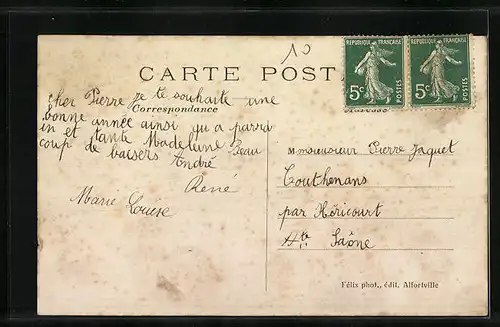 10
CARTE POST
REPUBLIQUE FRANÇAISE
5c
POSTES
REPUBLIQUE FRANÇAISE
5c
POSTES
cher Pierre je te souhaite une
Correspondance
bonne année ainsi qu a parra
in et tante Madeleine Beau
coup de baisers André
René
Marie Louise
M monsieusieur Pierre Jaquet
Couthenans
par Héricourt
Hte Saône
Félix phot., édit. Alfortville